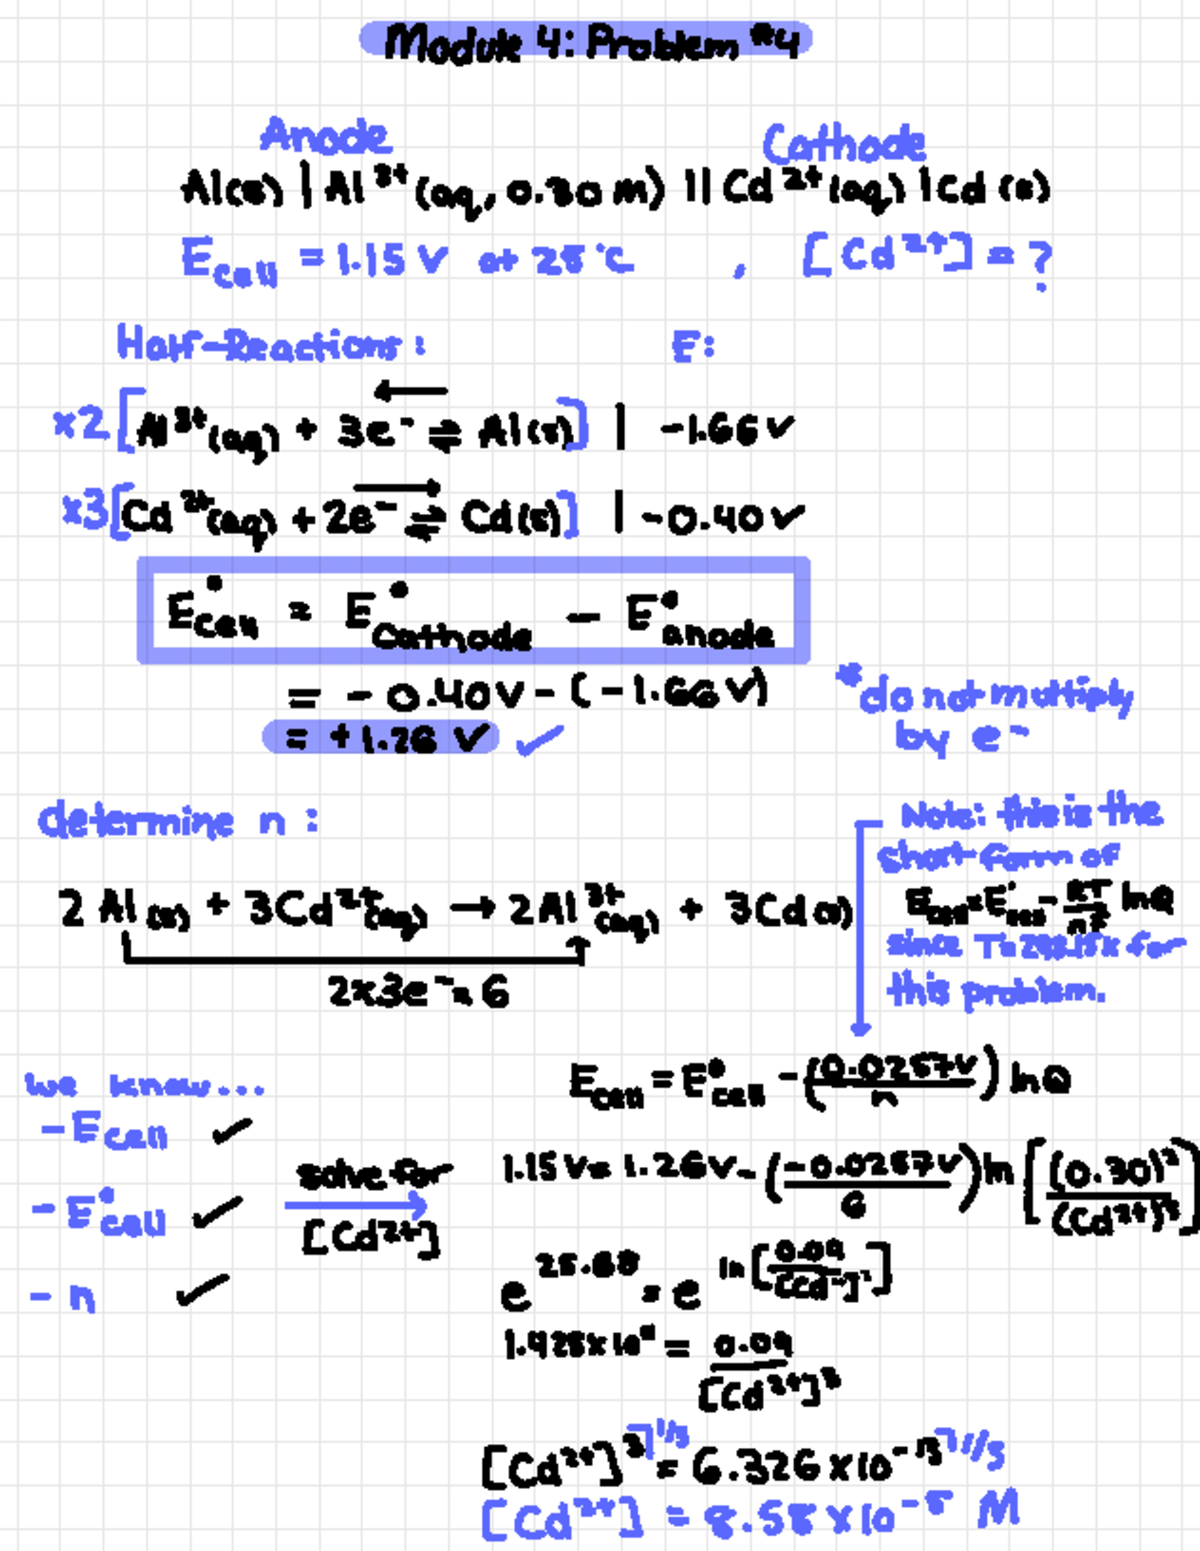 Module 4: Problem #4
Anode Cathode
Al(s) | Al³⁺(aq, 0.30 M) || Cd²⁺(aq) | Cd(s)
E cell = 1.15 V at 25°C , [Cd²⁺] = ?
Half-Reactions: E:
x2 [Al³⁺(aq) + 3e⁻ ⇌ Al(s)] | -1.66 V
x3 [Cd²⁺(aq) + 2e⁻ ⇌ Cd(s)] | -0.40 V
E°cell = E°cathode - E°anode
= -0.40V - (-1.66V)
= +1.26 V ✓
*do not multiply
by e⁻
determine n:
Note: this is the
short form of
Ecell = E°cell - RT/nF lnQ
since T=298.15K for
this problem.
2Al(s) + 3Cd²⁺(aq) → 2Al³⁺(aq) + 3Cd(s)
2x3e⁻ = 6
we know...
- Ecell ✓
- E°cell ✓
- n ✓
solve for
[Cd²⁺]
Ecell = E°cell - (0.0257V/n) lnQ
1.15V = 1.26V - (-0.0257V/6) ln[(0.30)²/(Cd²⁺)³]
e^25.68 = e^ln[0.09/[Cd²⁺]³]
= 0.09/[Cd²⁺]³
[Cd²⁺]³^1/3 = 6.326 x 10⁻¹³^1/3
[Cd²⁺] = 8.58 x 10⁻⁵ M